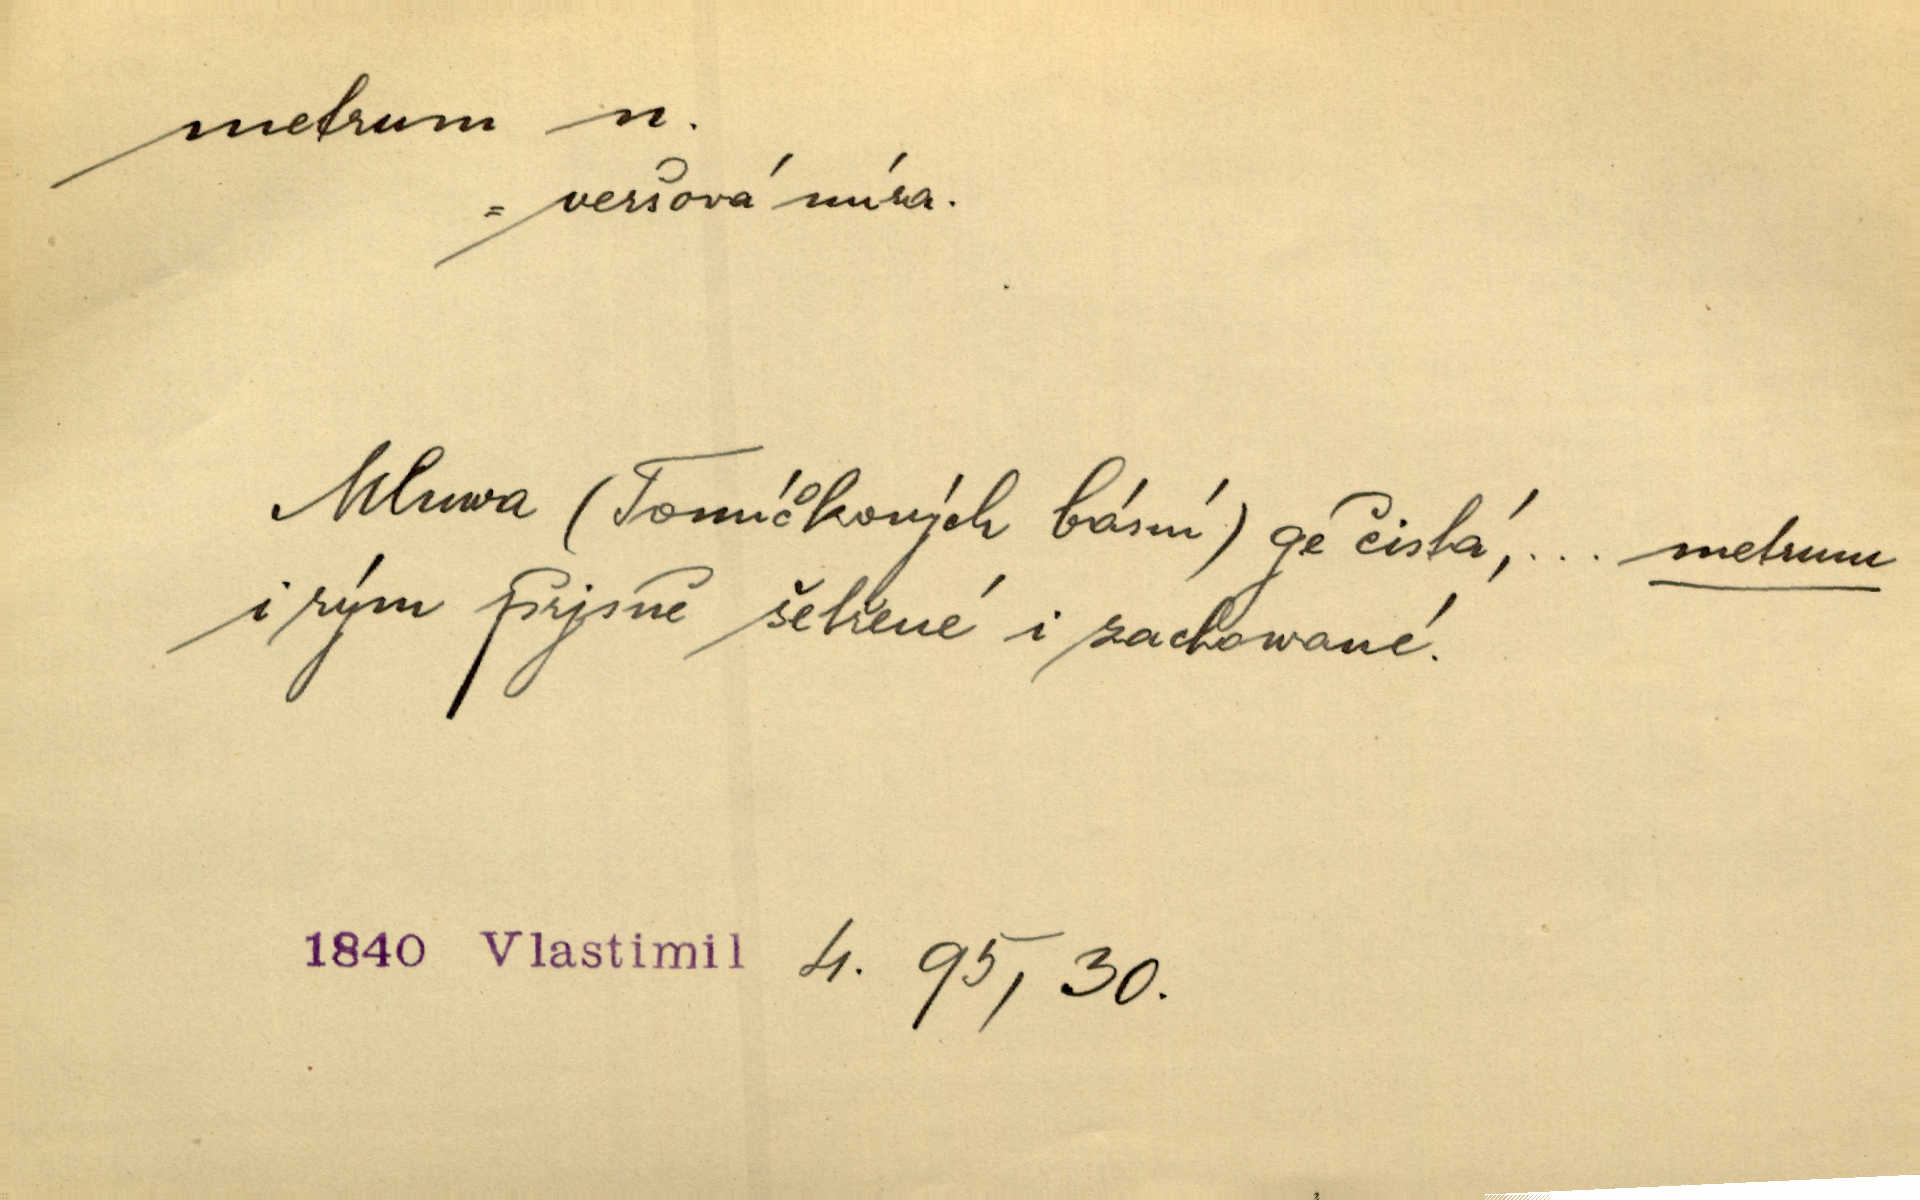 metrum n.
= veršová míra.
Mluwa (Tomíčkových básní) gé čistá, ... metrum
i rým přjsně šetřené i zachowané.
1840 Vlastimil 4. 95, 30.